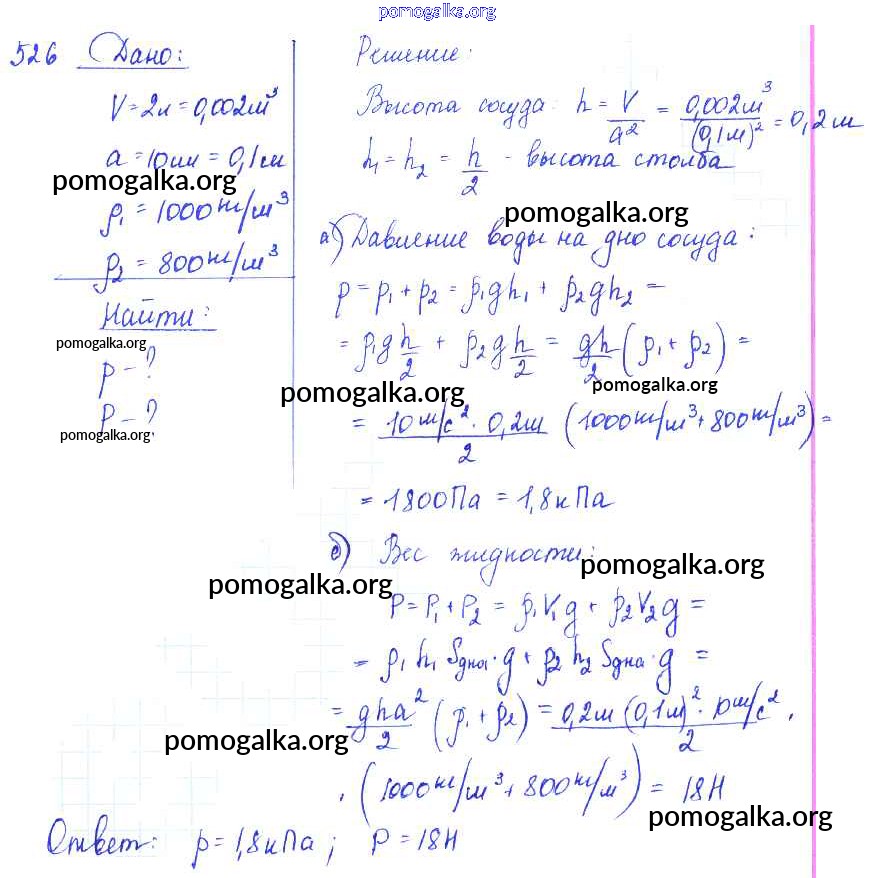 pomogalka.org
526 Дано:
V = 2л = 0,002м³
a = 10см = 0,1м
pomogalka.org
ρ₁ = 1000кг/м³
ρ₂ = 800кг/м³
Найти:
pomogalka.org
p - ?
P - ?
pomogalka.org
Решение:
Высота сосуда: h = V/a² = 0,002м³/(0,1м)² = 0,2м
h₁ = h₂ = h/2 - высота столба
pomogalka.org
а) Давление воды на дно сосуда:
p = p₁ + p₂ = ρ₁gh₁ + ρ₂gh₂ =
= ρ₁g h/2 + ρ₂g h/2 = gh/2 (ρ₁ + ρ₂) =
pomogalka.org pomogalka.org
= 10м/с² · 0,2м/2 (1000кг/м³ + 800кг/м³) =
= 1800Па = 1,8кПа
б) Вес жидкости:
pomogalka.org pomogalka.org
P = P₁ + P₂ = ρ₁V₁g + ρ₂V₂g =
= ρ₁h₁Sдна·g + ρ₂h₂Sдна·g =
= gha²/2 (ρ₁ + ρ₂) = 0,2м (0,1м)² · 10м/с²/2 ·
pomogalka.org
· (1000кг/м³ + 800кг/м³) = 18Н
pomogalka.org
Ответ: p = 1,8кПа; P = 18Н